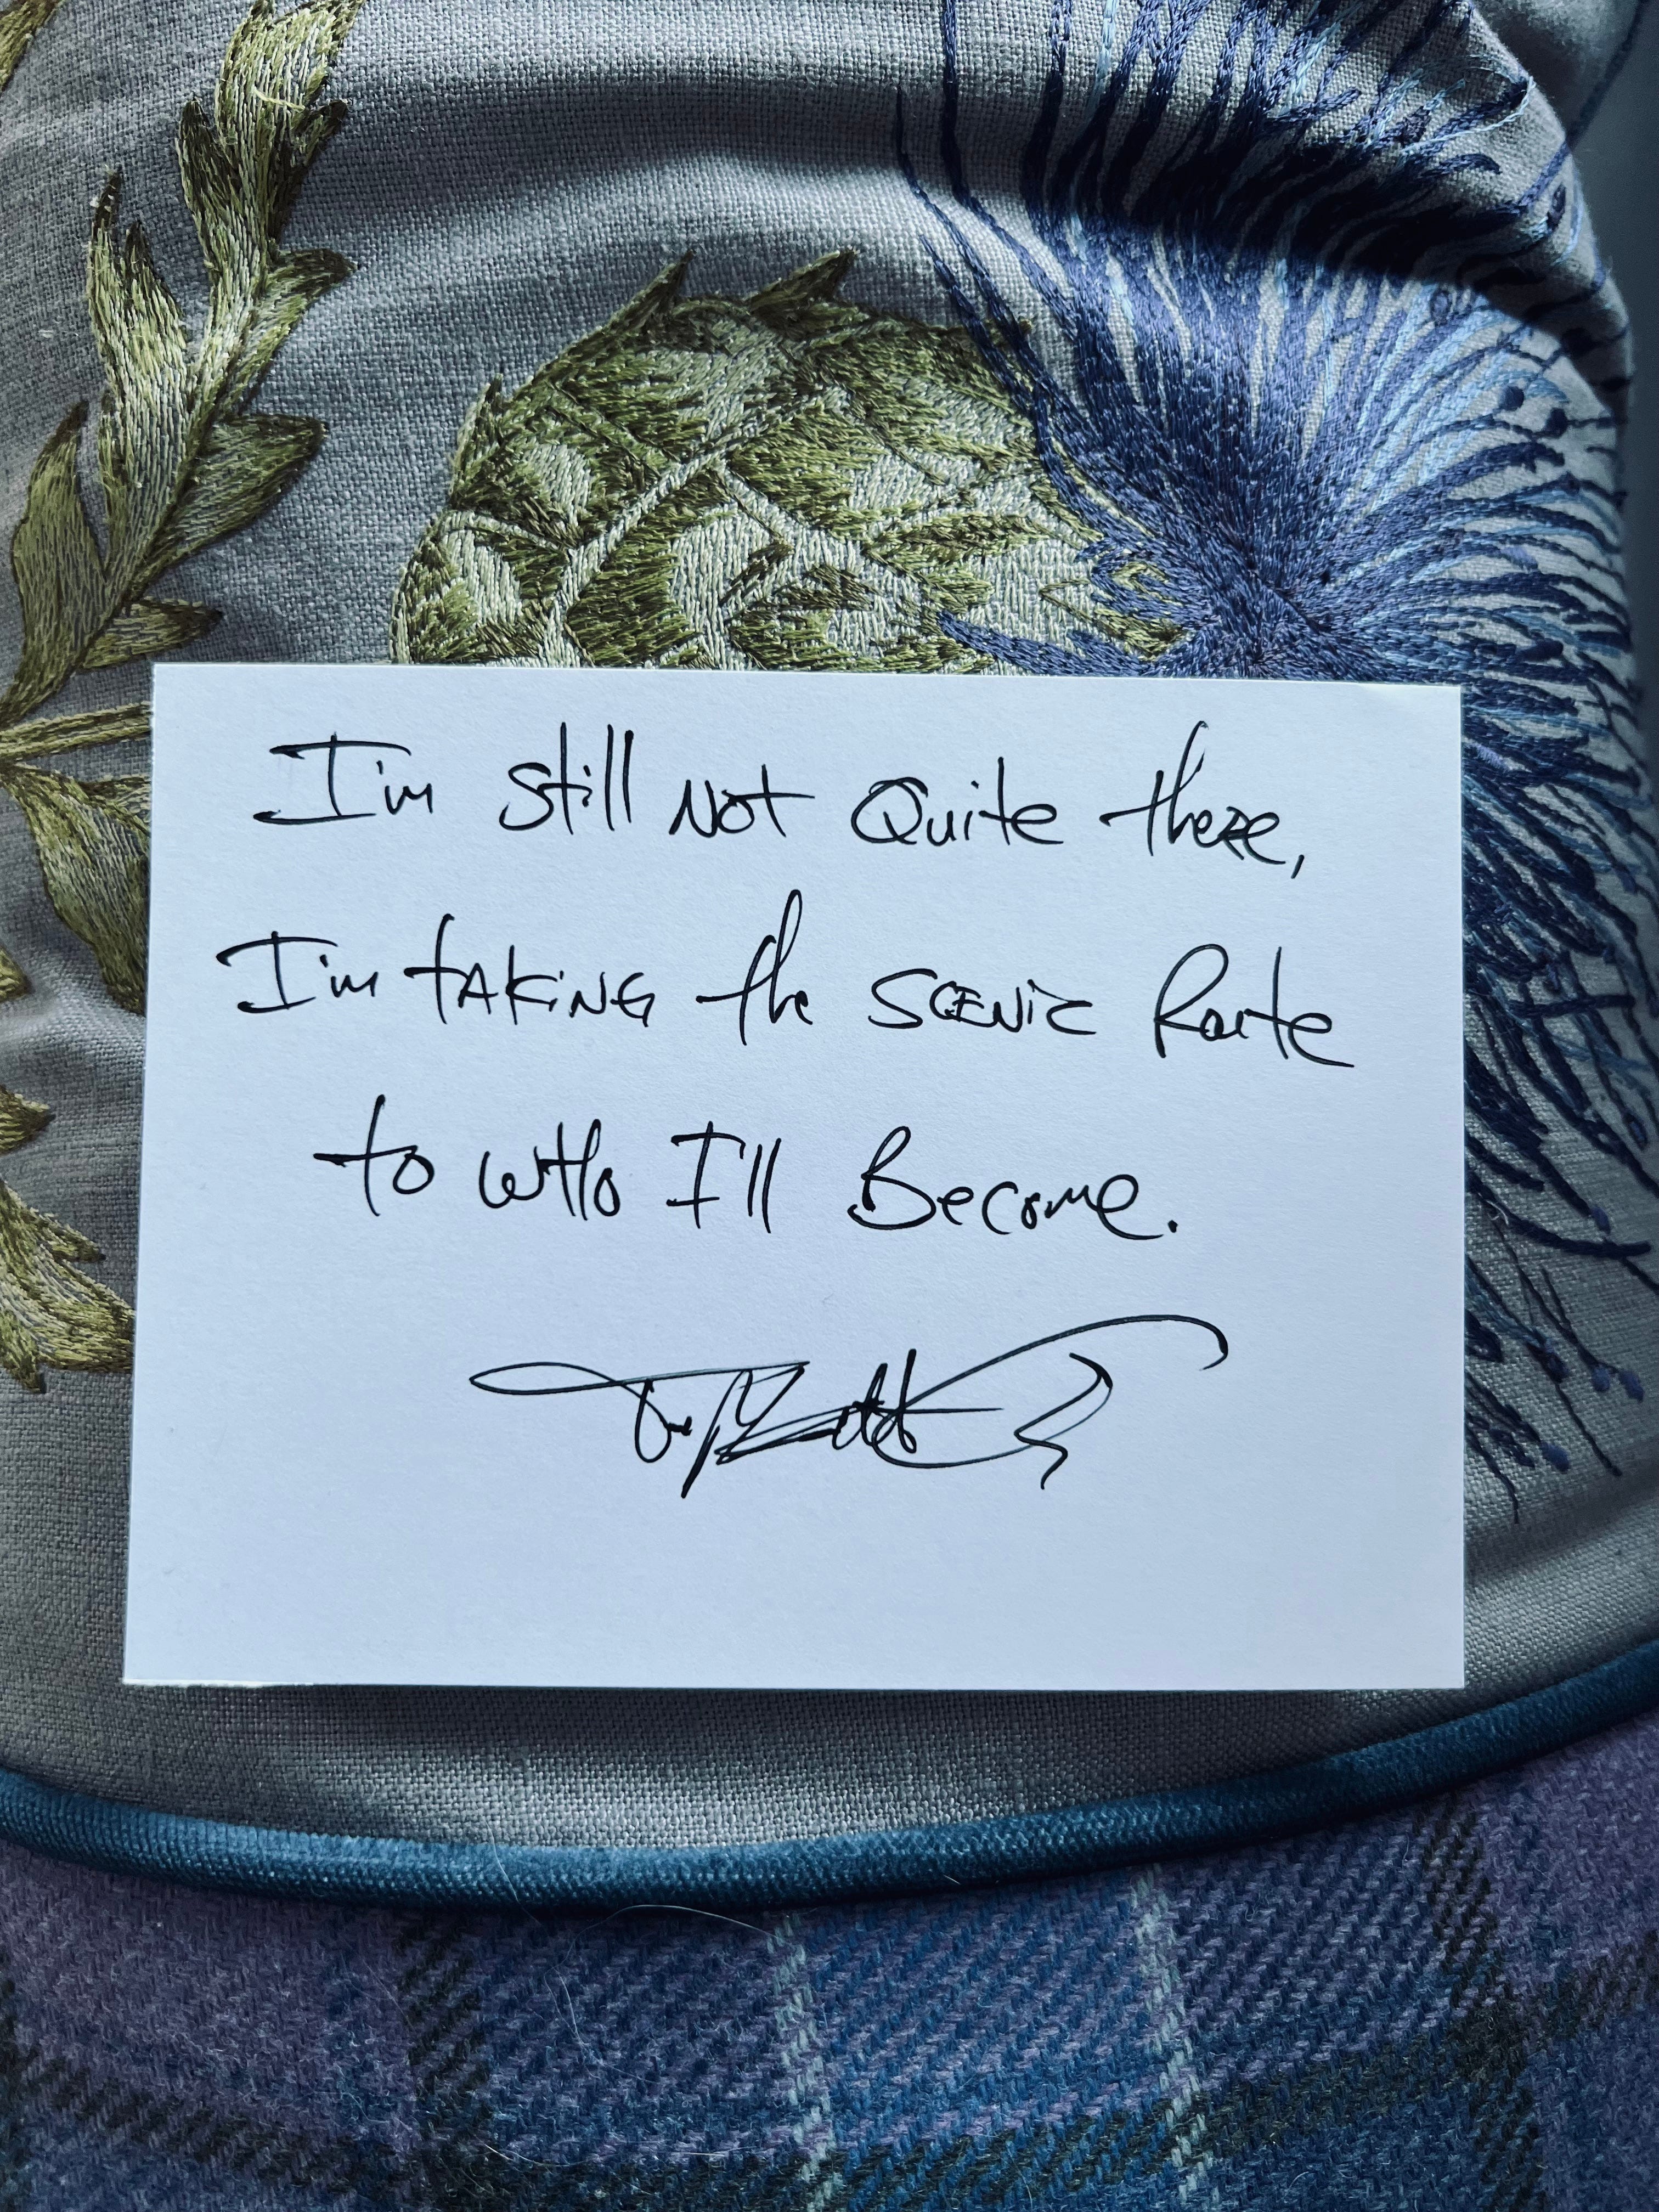 I'm still Not Quite there,
I'm tAKiNG the SCENiC Route
to wHo I'll Become.